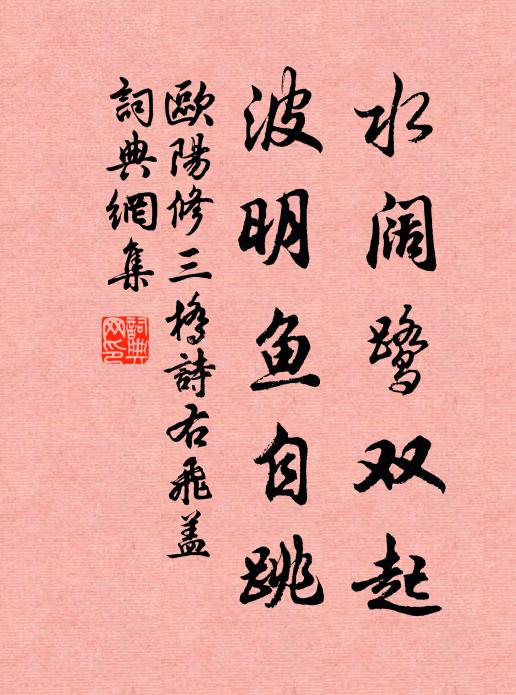 水阔鹭双起
波明鱼自跳
歐陽修三橋詩右飛盖
詞典網集
詞典網印